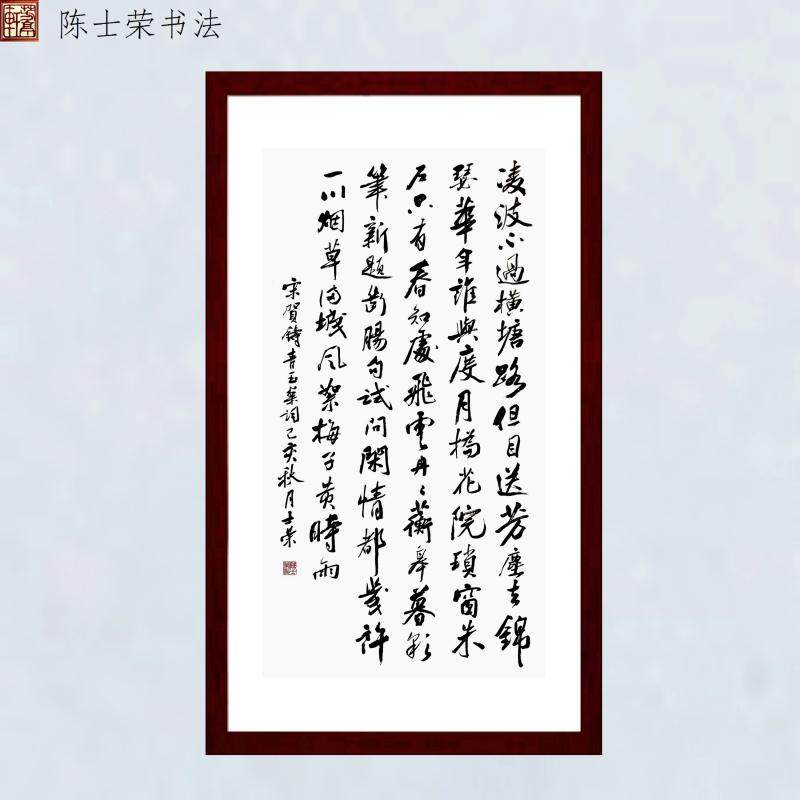 陈士荣书法
凌波不過橫塘路但目送芳塵去錦
瑟華年誰與度月橋花院瑣窗朱
户只有春知處飛雲冉冉蘅皋暮彩
筆新題斷腸句試問閑情都幾許
一川烟草滿城風絮梅子黄時雨
宋賀鑄青玉案詞己亥秋月士荣